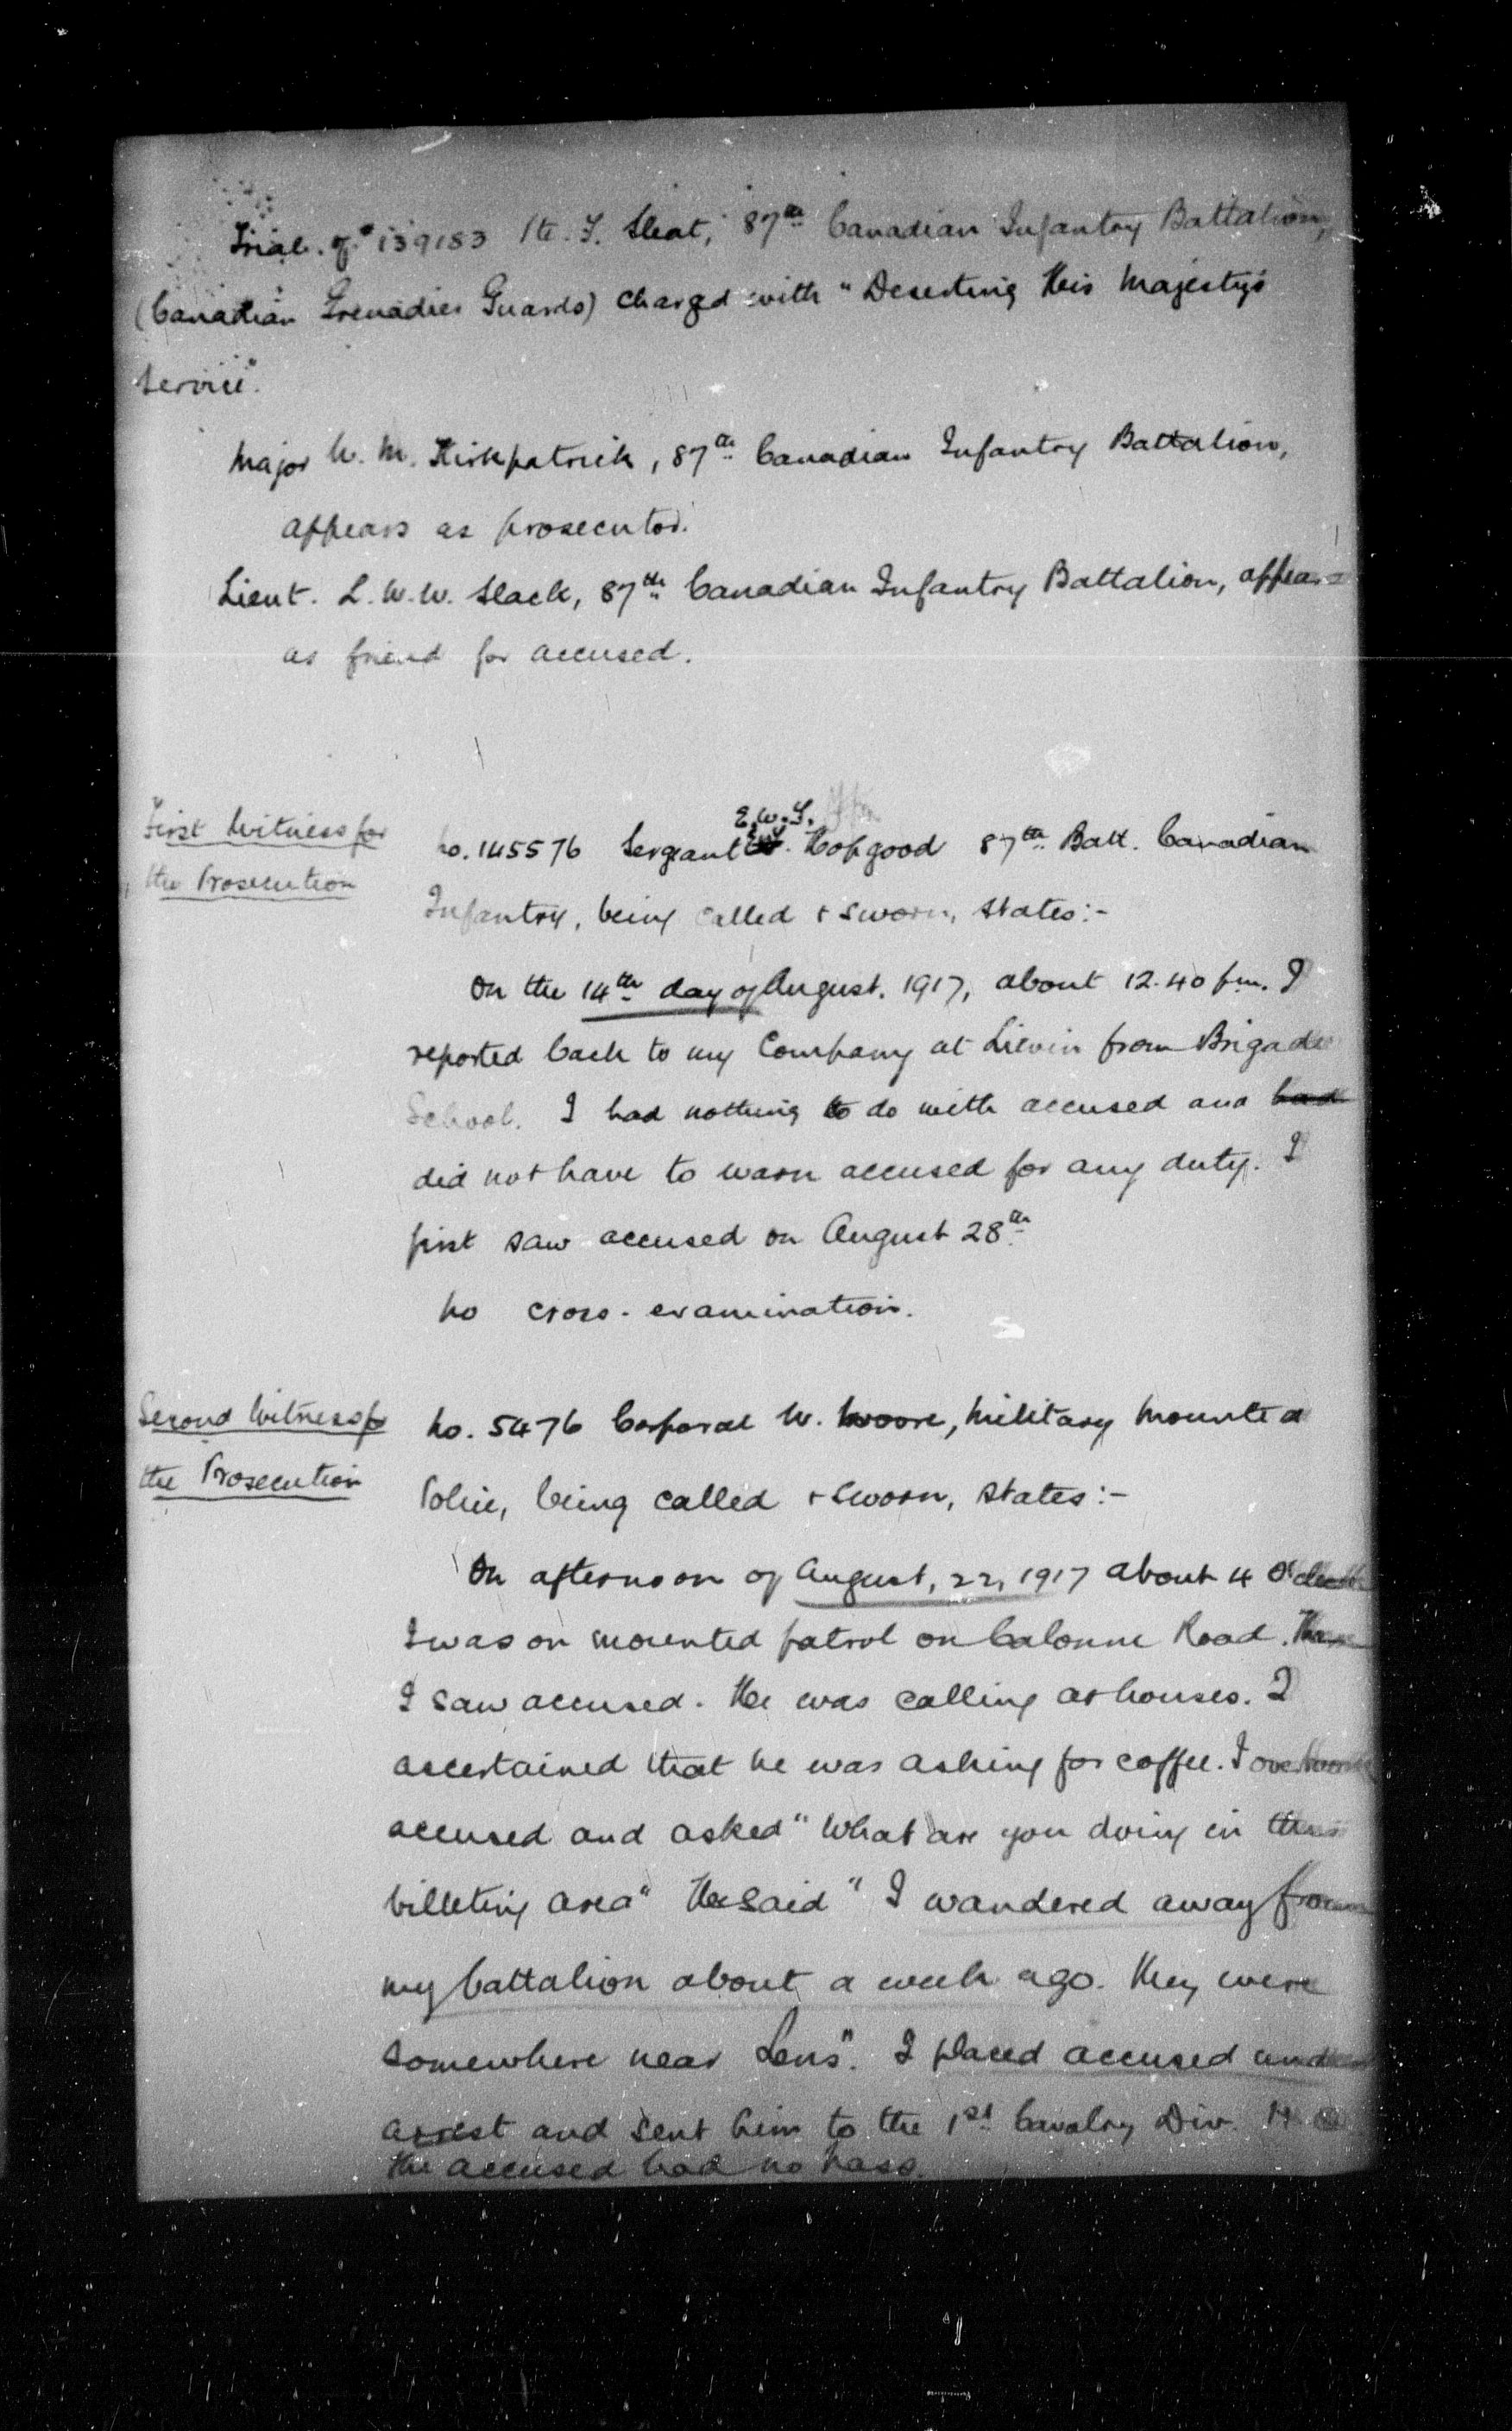 Trial. of # 139183 Pte. F. Sleat, 87th Canadian Infantry Battalion,
(Canadian Grenadier Guards) charged with "Deserting His Majesty's
Service".
Major W. M. Kirkpatrick, 87th Canadian Infantry Battalion,
appears as prosecutor.
Lieut. L. W. W. Slack, 87th Canadian Infantry Battalion, appears
as friend for accused.
First Witness for
the Prosecution
E.W.F.
No. 145576 Sergeant Hopgood 87th Batt. Canadian
Infantry, being called & sworn, states:-
On the 14th day of August. 1917, about 12.40 pm. I
reported back to my Company at Lievin from Brigade
School. I had nothing to do with accused and had
did not have to warn accused for any duty. I
first saw accused on August 28th
No cross-examination.
Second Witness for
the Prosecution
No. 5476 Corporal W. Moore, Military Mounted
Police, being called & sworn, states:-
On afternoon of August, 22, 1917 about 4 O'clock
I was on mounted patrol on Calonne Road.
I saw accused. He was calling at houses. I
ascertained that he was asking for coffee. I overtook
accused and asked "What are you doing in this
billeting area" He said "I wandered away from
my battalion about a week ago. They were
somewhere near Lens". I placed accused under
arrest and sent him to the 1st Cavalry Div. H.Q.
The accused had no pass.